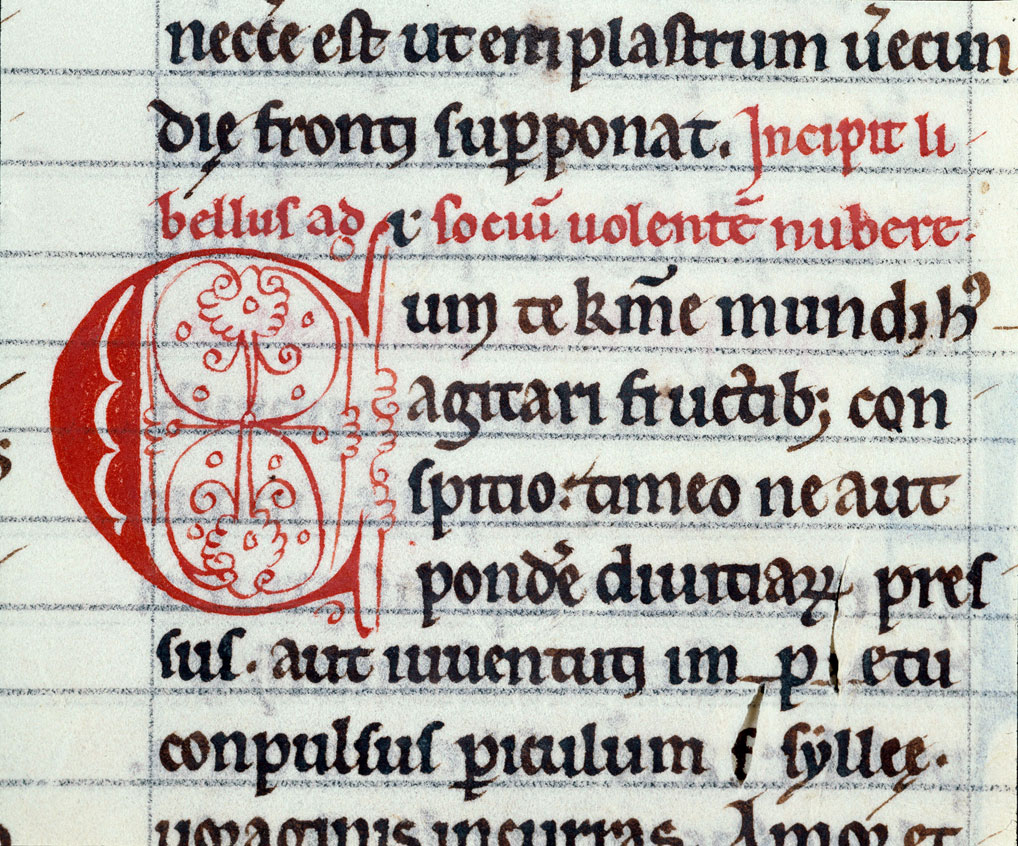 necc̄e est ut emplastrum ūecun
dię fronti supponat. Incipit li
bellus ad r· sociū uolentē nubere·
Cum te km̄e mundi hꝰ
agitari fructib; con
spitio. timeo ne aut
pond̄e diuitiaꝝ pres
sus. aut iuuentutis im p etu
conpulsus ꝑiculum syllęę.
uoraginis incurras. Amor et